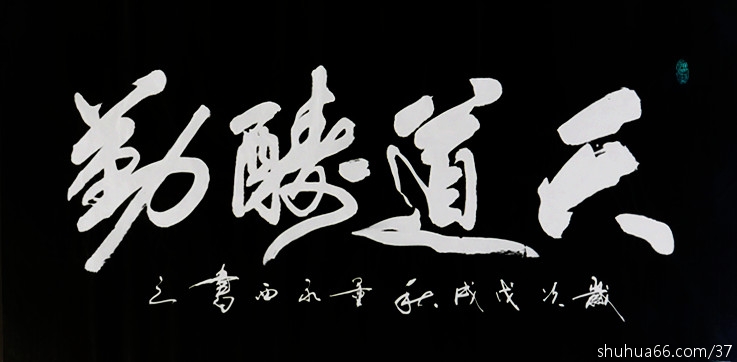 天道酬勤
歲次戊戌秋永西書之
shuhua66.com/37